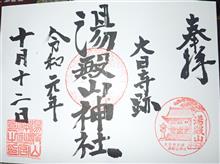 奉拝
大日寺跡
湯殿山神社
令和元年
十月十二日
湯殿山